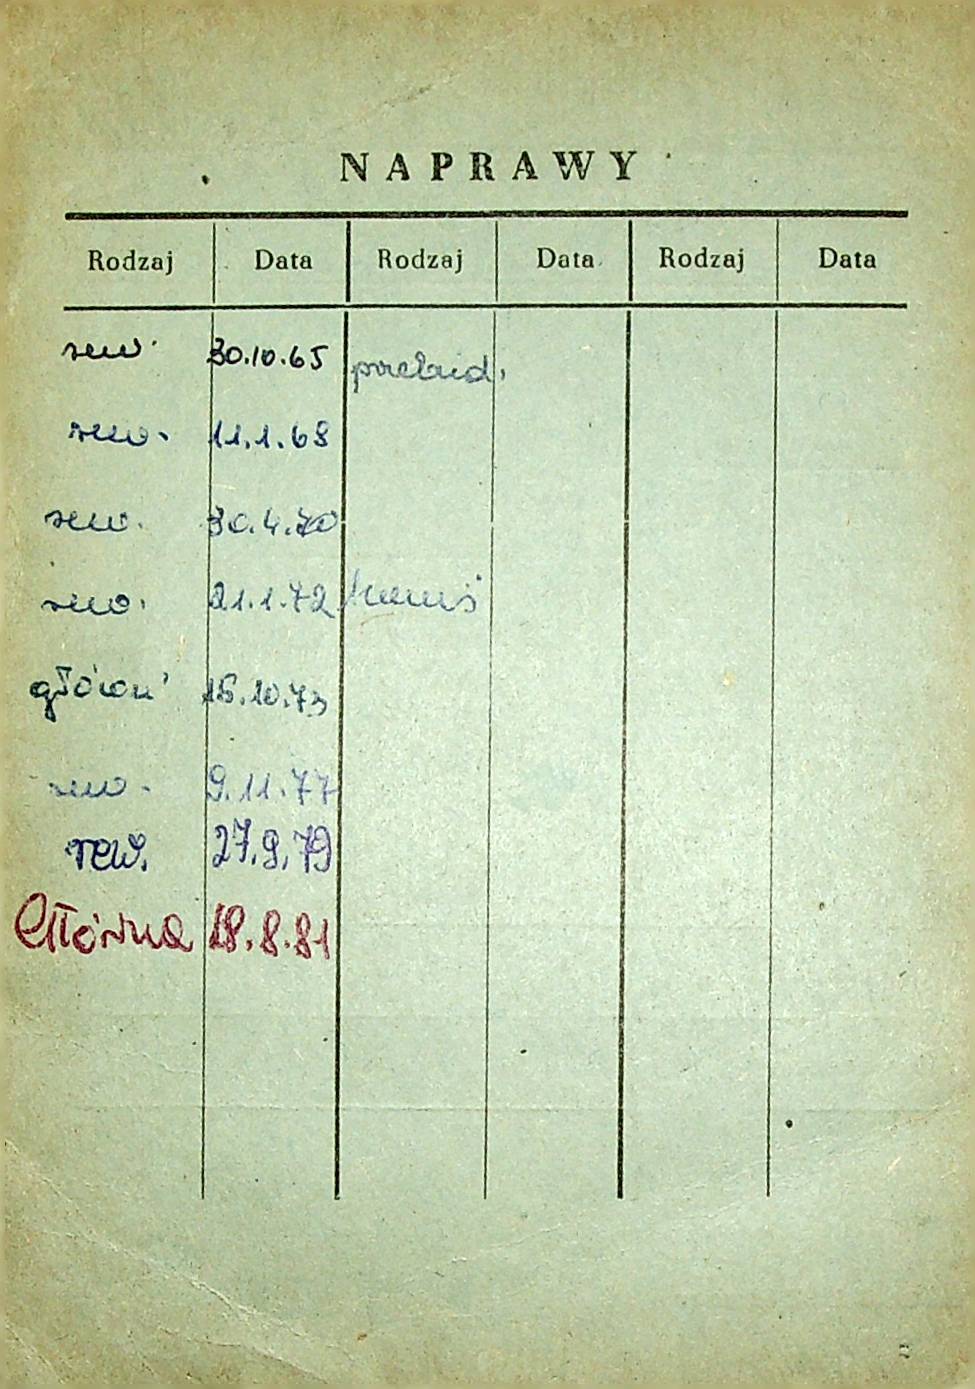 NAPRAWY
Rodzaj Data Rodzaj Data Rodzaj Data
rew. 30.10.65
rew. 11.1.68
rew. 30.4.70
rew. 21.1.72
główn. 16.10.73
rew. 9.11.77
rew. 27.9.79
Główna 18.8.81